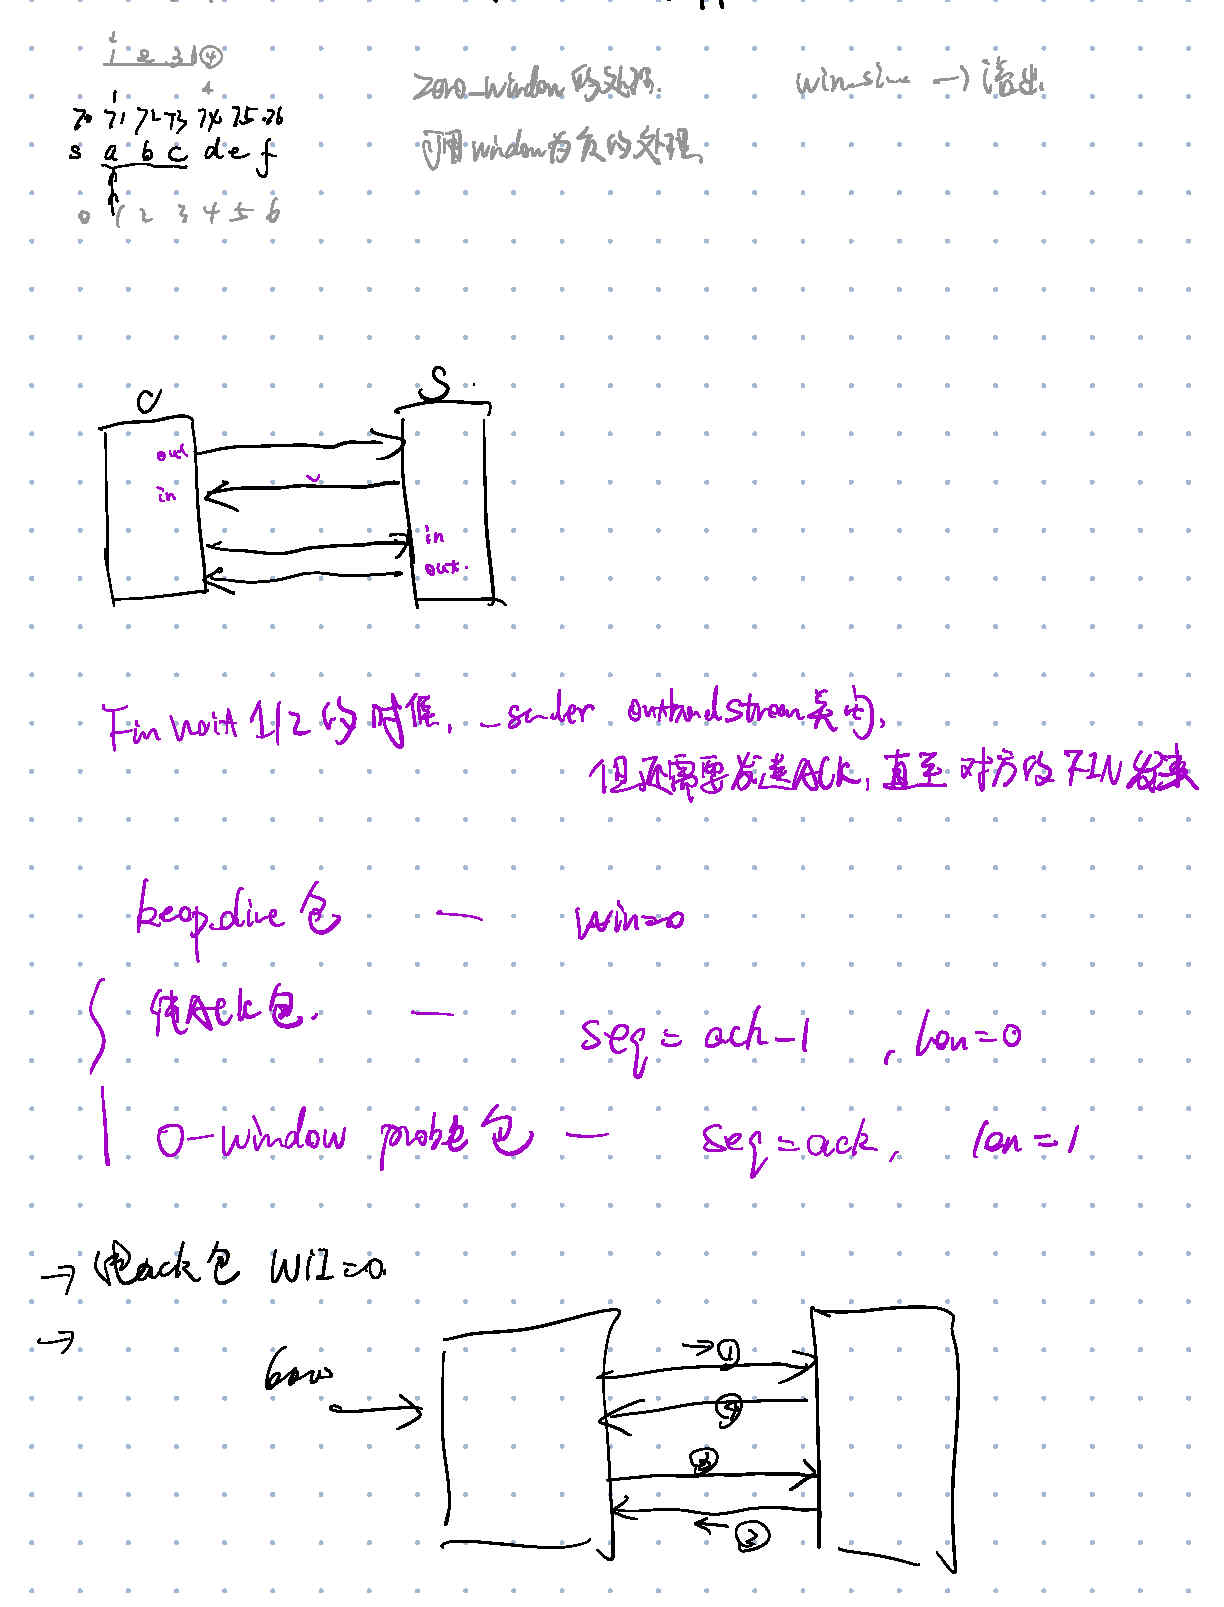 1 2 3 4
4
70 71 72 73 74 75 76
s a b c d e f
0 1 2 3 4 5 6
zero_window 的处理.
win_size → 溢出.
可用 window 为负的处理.
C
S.
out
in
in
out.
Fin wait 1/2 的时候, _sender outbound stream 关闭,
但还需要发送ACK, 直至对方的 FIN 发来
keep_alive 包 — win=0
纯ACK包. — seq = ack-1 , len=0
0-window probe 包 — seq=ack, len=1
→ 纯ack包 WIN=0.
→
①
④
③
← ②